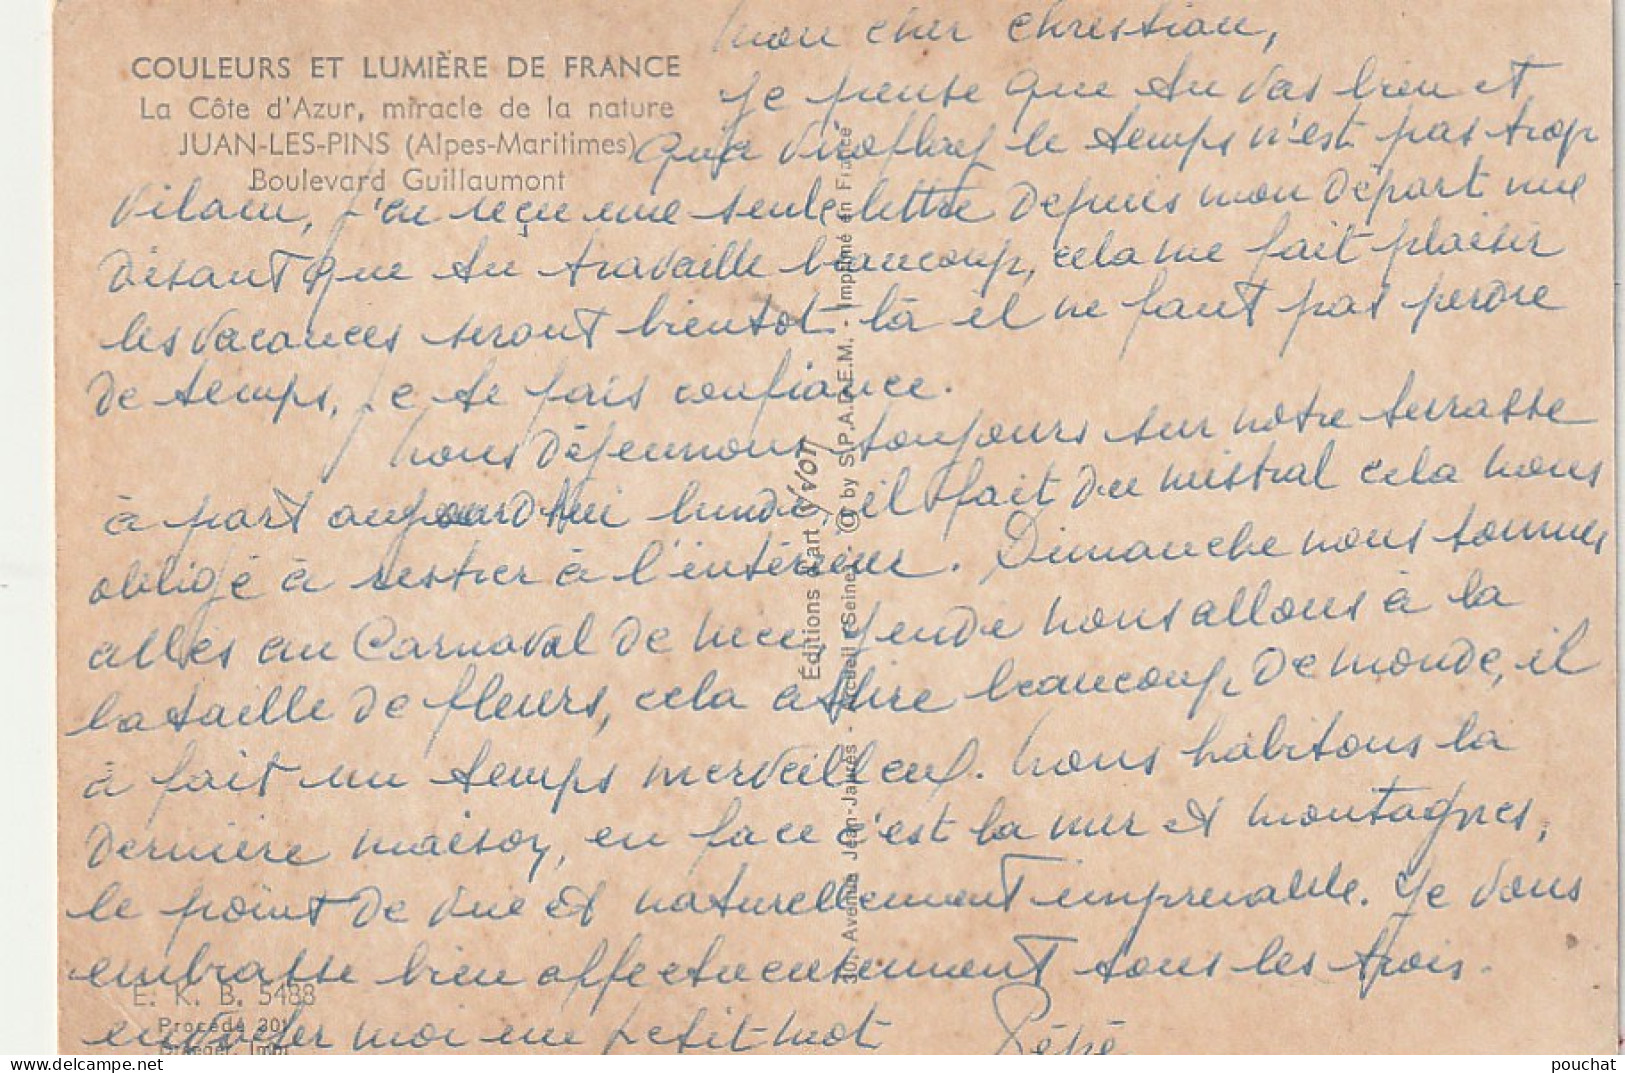 COULEURS ET LUMIÈRE DE FRANCE
La Côte d'Azur, miracle de la nature
JUAN-LES-PINS (Alpes-Maritimes)
Boulevard Guillaumont
Mon cher Christian,
Je pense que tu vas bien et
qu'à Viroflay le temps n'est pas trop
vilain, j'ai reçu une seule lettre depuis mon départ me
disant que tu travaille beaucoup, cela me fait plaisir
les vacances seront bientot là il ne faut pas perdre
de temps, je te fais confiance.
Nous déjeunons toujours sur notre terrasse
à part aujourd'hui lundi, il fait du mistral cela nous
obligé à rester à l'intérieur. Dimanche nous sommes
allés au Carnaval de Nice, jeudi nous allons à la
bataille de fleurs, cela attire beaucoup de monde, il
à fait un temps merveilleux. Nous habitons la
dernière maison, en face c'est la mer et montagnes,
le point de vue et naturellement imprenable. Je vous
embrasse bien affectueusement tous les trois.
envoyer moi un petit mot Pépé
Éditions d'art YVON
30, Avenue Jean-Jaurès - Arcueil (Seine) - © by S.P.A.D.E.M. - Imprimé en France
E. K. B. 5488
Procédé 301
Draeger, Imp.
pouchat